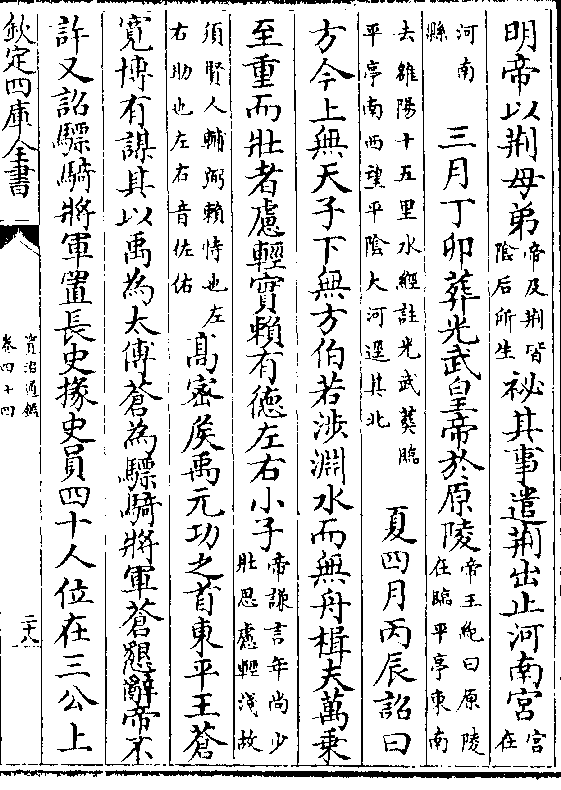 明帝以荆母弟帝及荆皆陰后所生祕其事遣荆出止河南宫宫在
河南縣三月丁卯葬光武皇帝於原陵帝王紀曰原陵在臨平亭東南
去雒陽十五里水經註光武葬臨平亭南西望平陰大河逕其北夏四月丙辰詔曰
方今上無天子下無方伯若涉淵水而無舟楫夫萬乗
至重而壯者慮輕實賴有徳左右小子帝謙言年尚少壯思慮輕淺故
須賢人輔弼賴恃也左右助也左右音佐佑髙密侯禹元功之首東平王蒼
寛博有謀其以禹為太傅蒼為驃騎將軍蒼懇辭帝不
許又詔驃騎將軍置長史掾史員四十人位在三公上
欽定四庫全書
資治通鑑
卷四十四